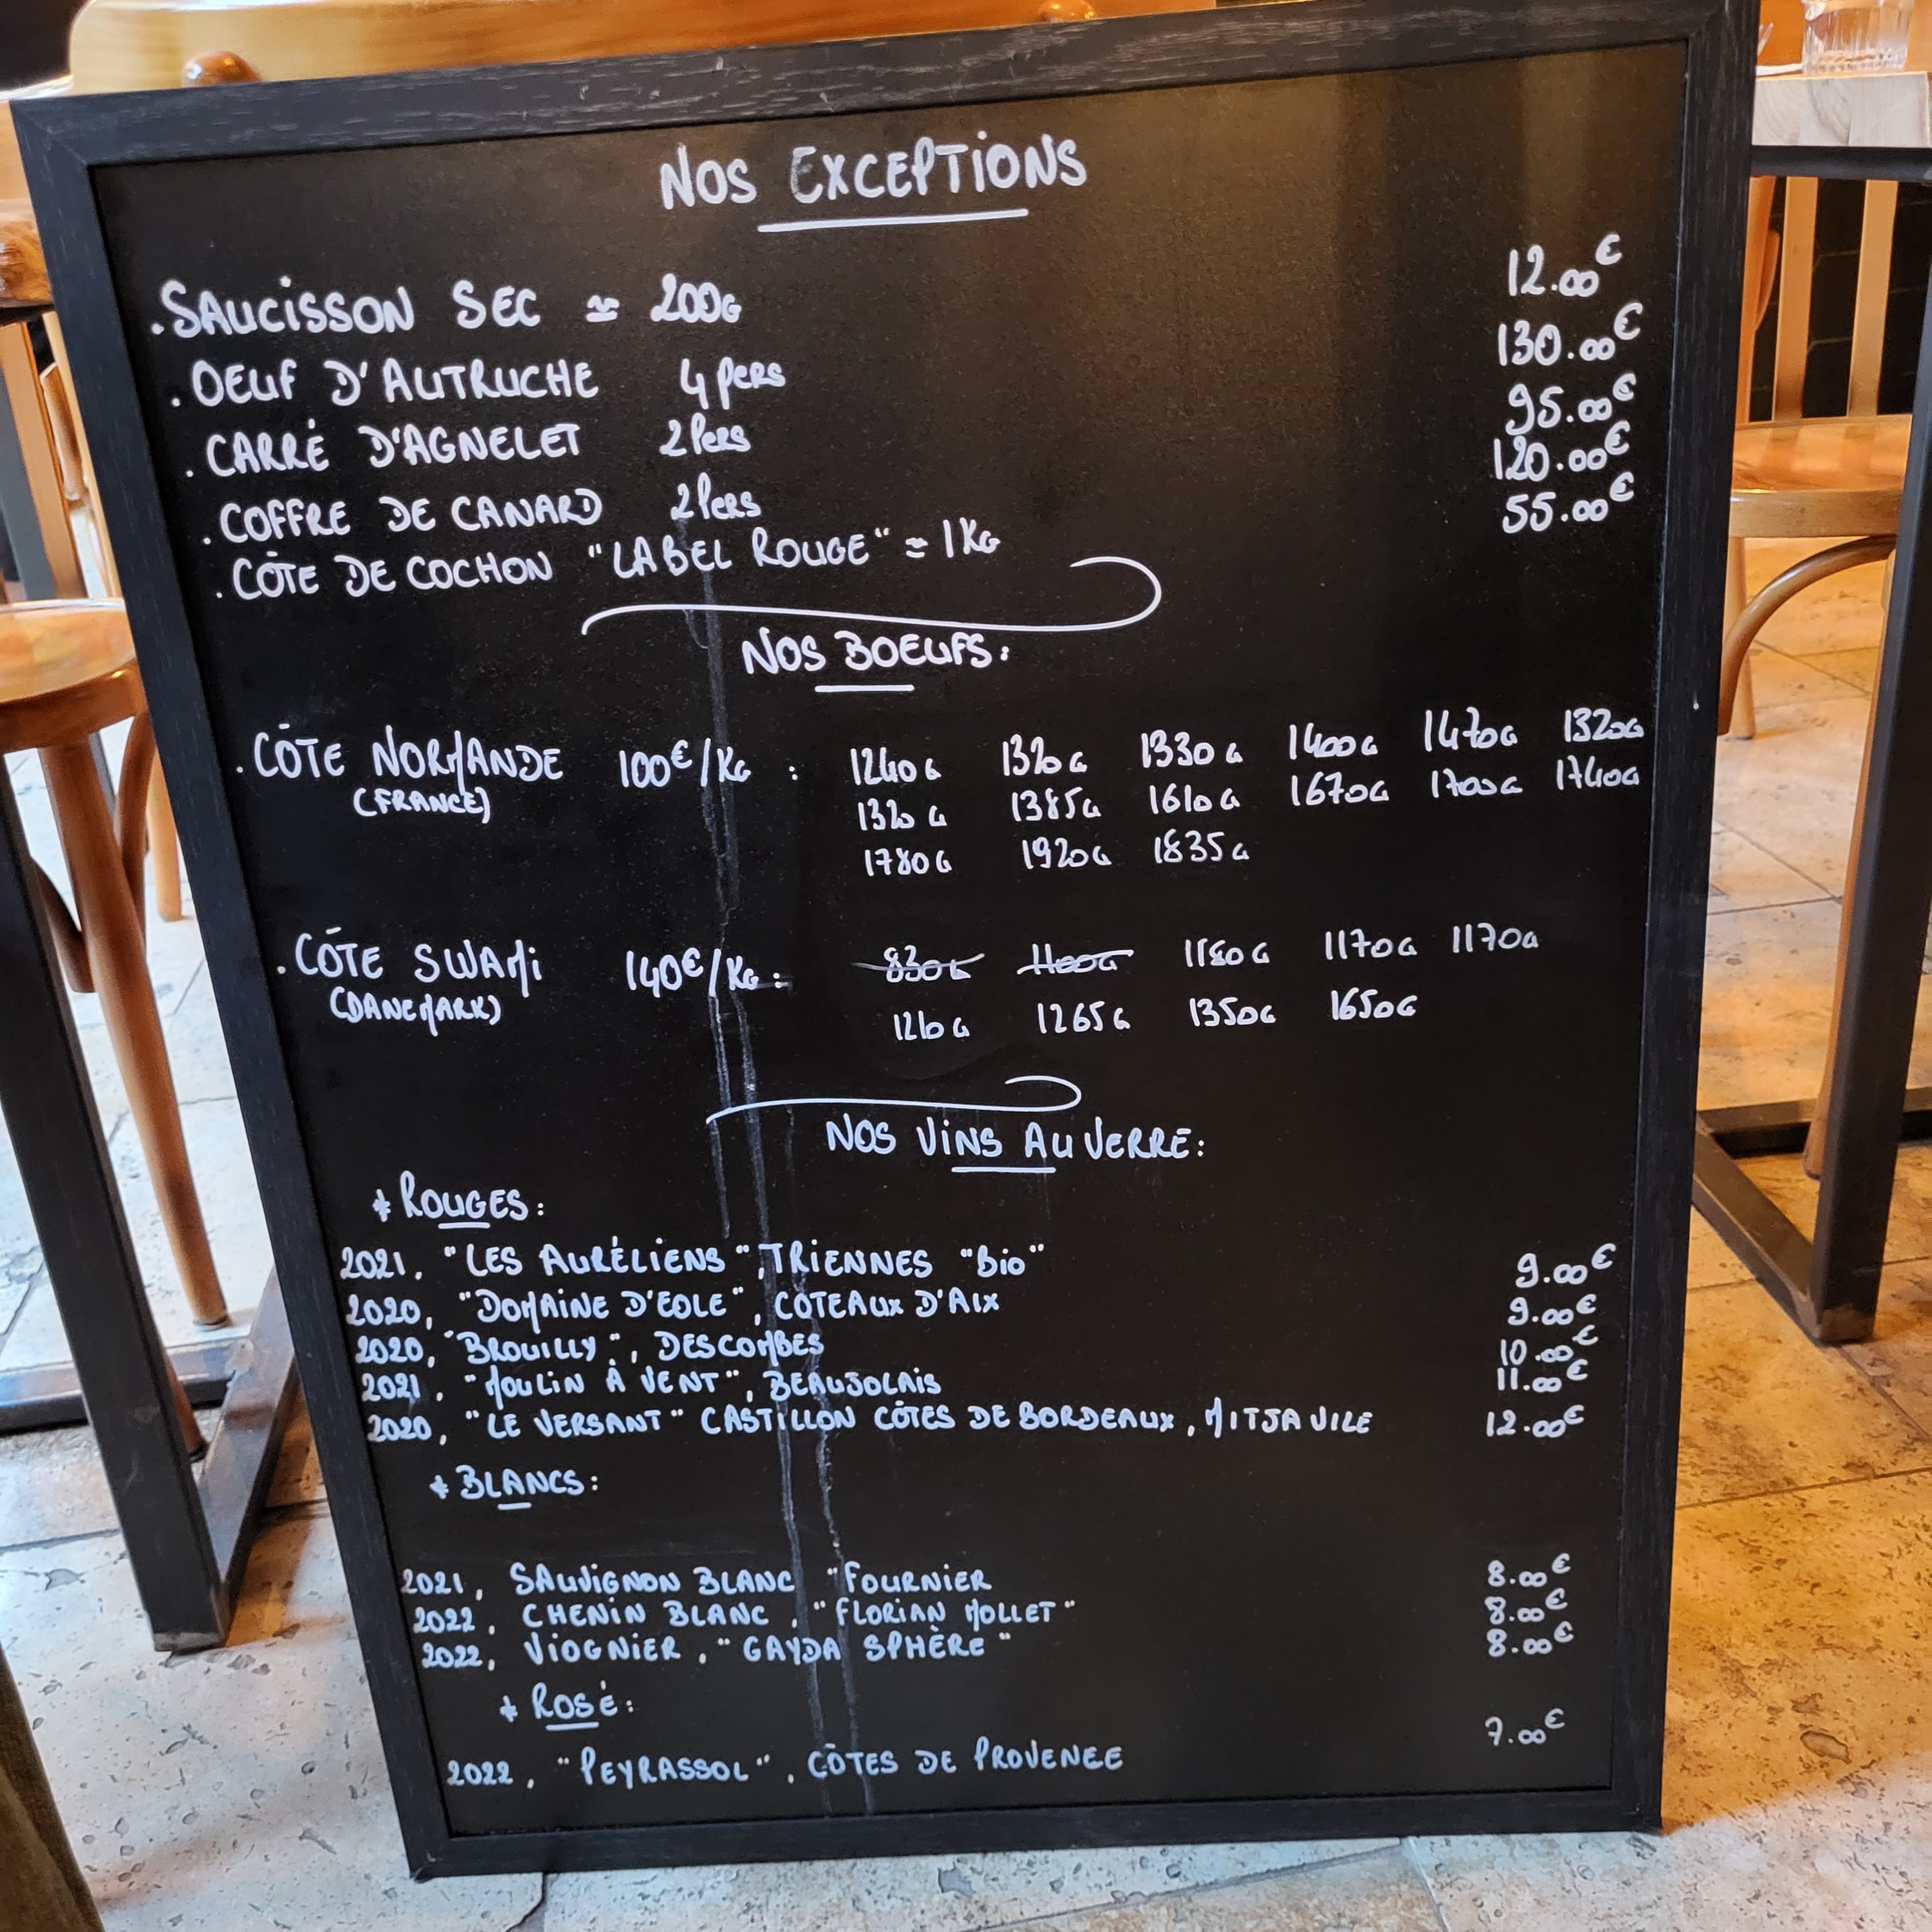 NOS EXCEPTIONS
. SAUCISSON SEC ≃ 200G 12.00€
. OEUF D'AUTRUCHE 4 PERS 130.00€
. CARRÉ D'AGNELET 2 PERS 95.00€
. COFFRE DE CANARD 2 PERS 120.00€
. CÔTE DE COCHON "LABEL ROUGE" ≃ 1KG 55.00€
NOS BOEUFS:
. CÔTE NORMANDE 100€/KG : 1240G 1320G 1330G 1400G 1470G 1320G
(FRANCE) 1320G 1385G 1610G 1670G 1700G 1740G
1780G 1920G 1835G
. CÔTE SWAMI 140€/KG : 830G 1100G 1180G 1170G 1170G
(DANEMARK) 1210G 1265G 1350G 1650G
NOS VINS AU VERRE:
* ROUGES:
2021, "LES AURÉLIENS", TRIENNES "Bio" 9.00€
2020, "DOMAINE D'EOLE", CÔTEAUX D'AIX 9.00€
2020, "BROUILLY", DESCOMBES 10.00€
2021, "MOULIN À VENT", BEAUJOLAIS 11.00€
2020, "LE VERSANT" CASTILLON CÔTES DE BORDEAUX, MITJAVILE 12.00€
* BLANCS:
2021, SAUVIGNON BLANC "FOURNIER 8.00€
2022, CHENIN BLANC, "FLORIAN MOLLET" 8.00€
2022, VIOGNIER, "GAYDA SPHÈRE" 8.00€
* ROSÉ:
2022, "PEYRASSOL", CÔTES DE PROVENCE 7.00€